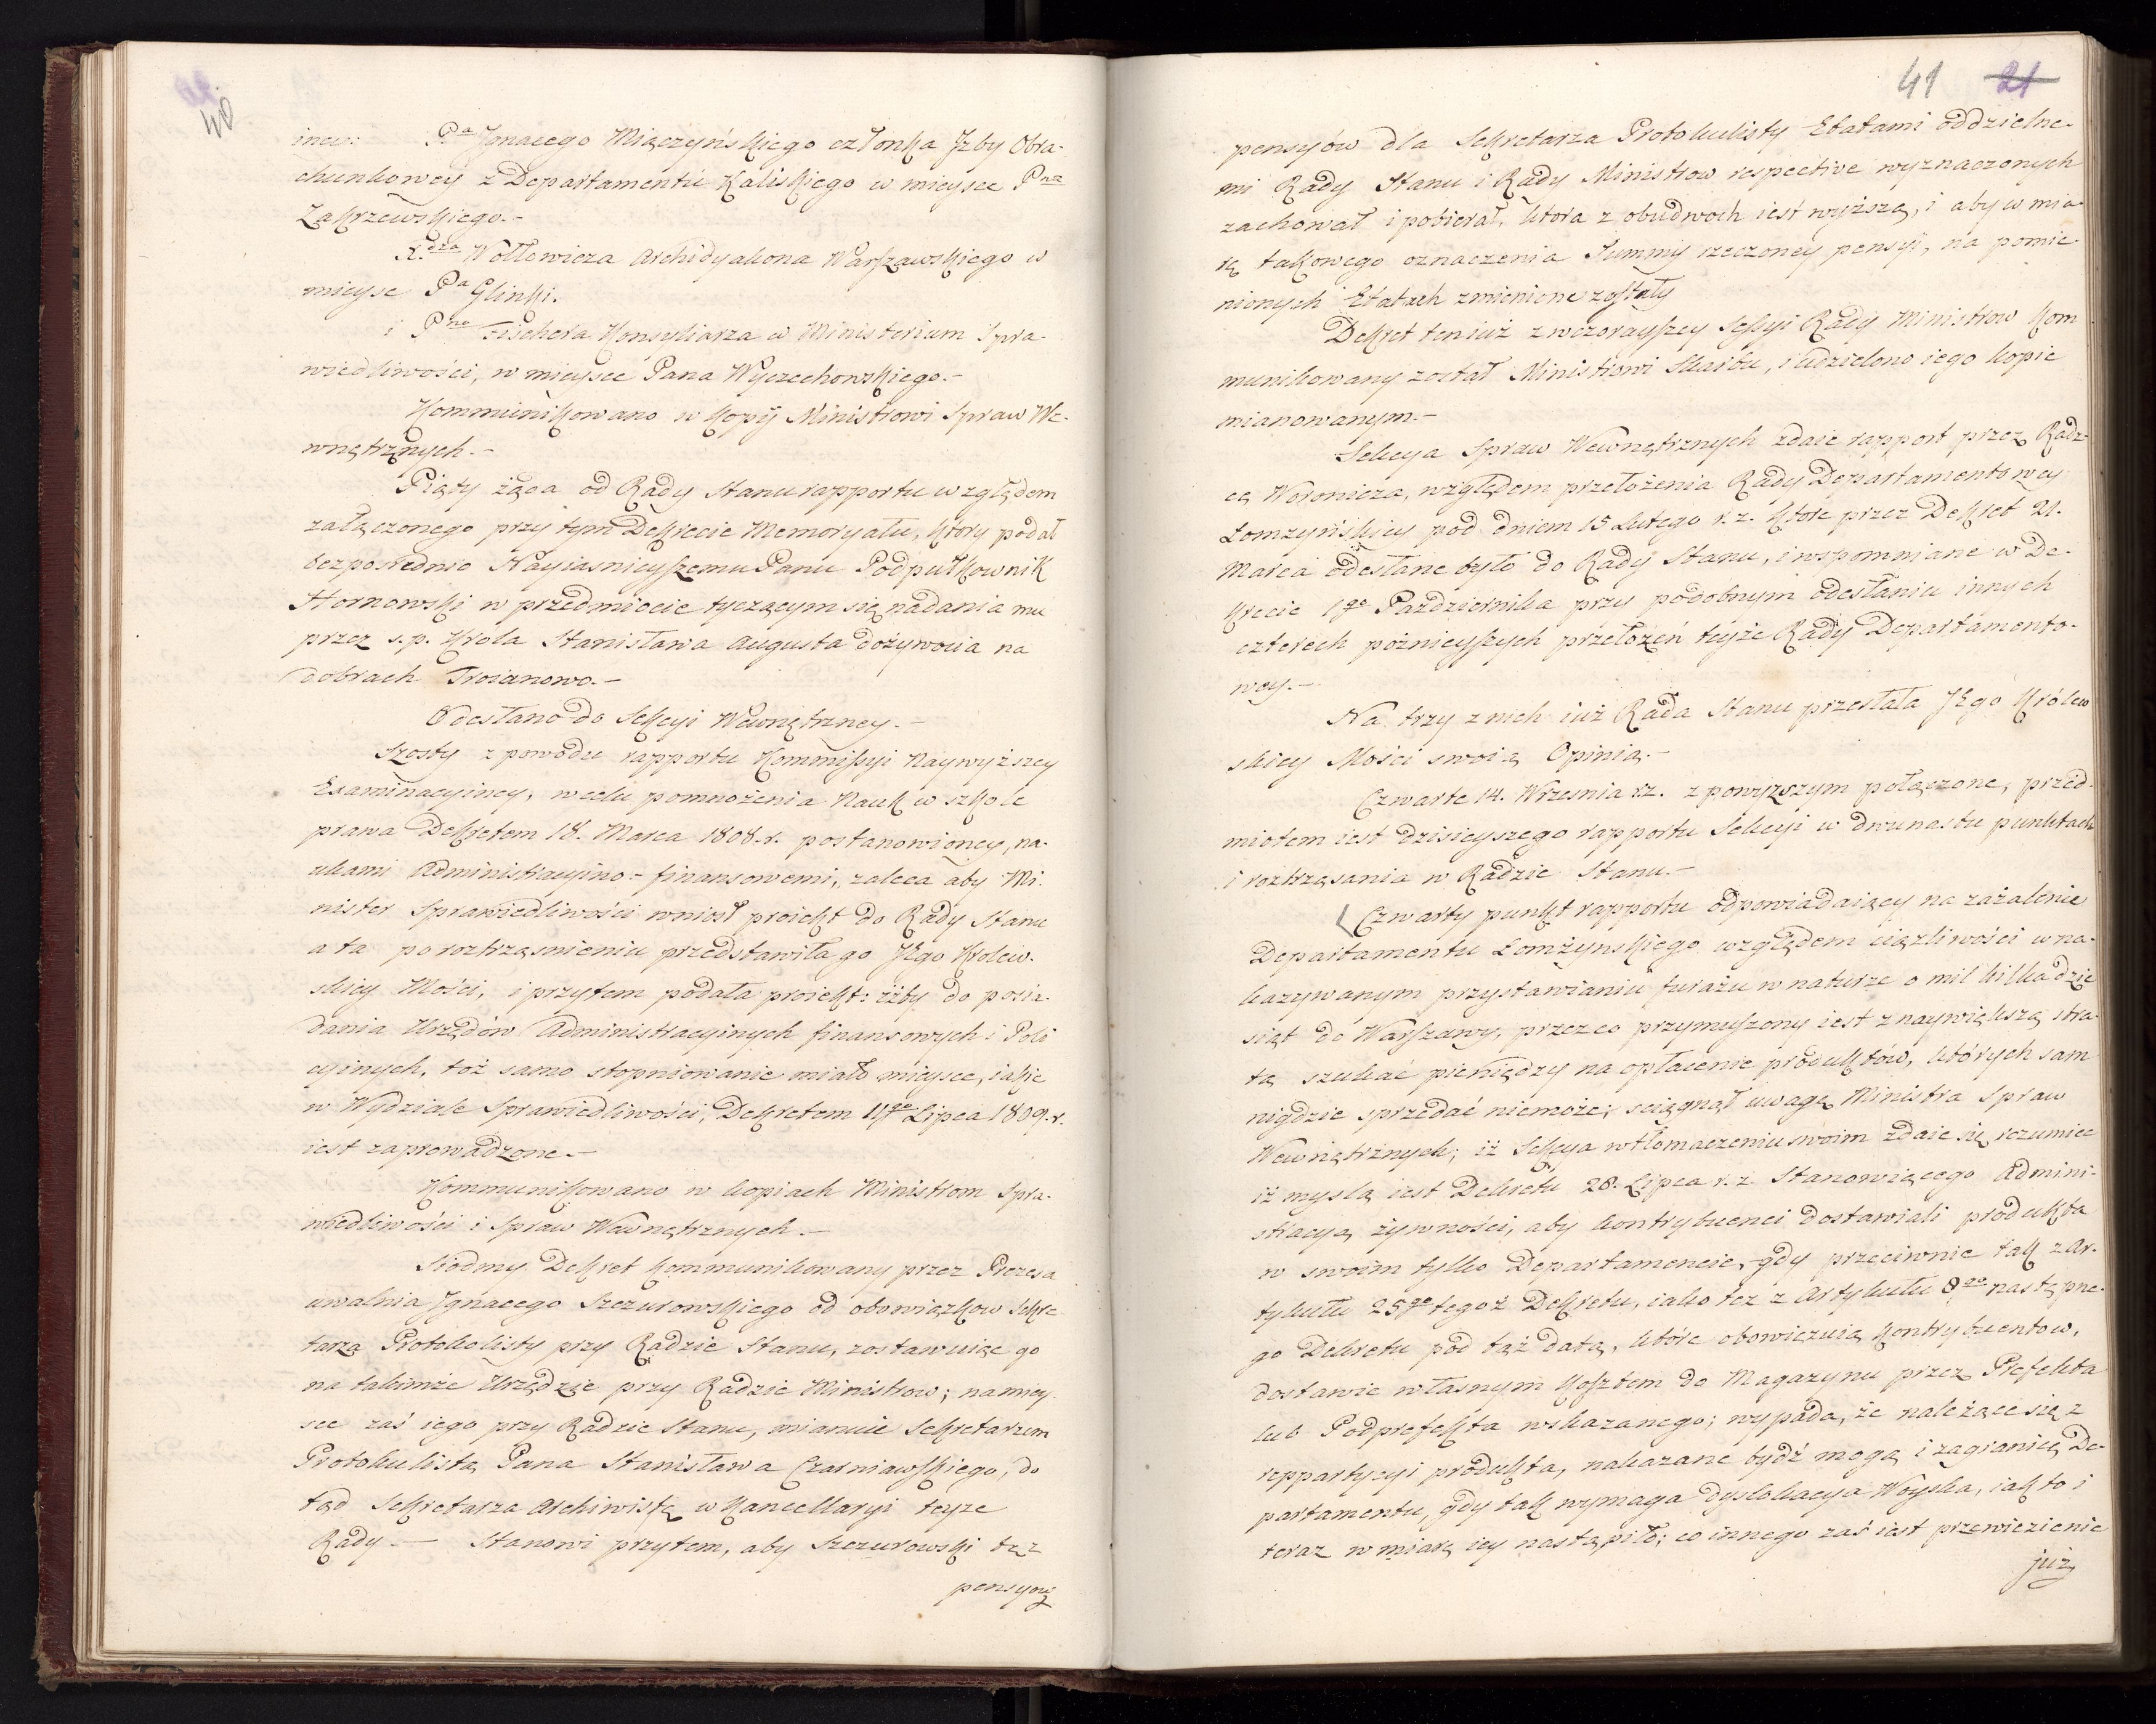 40
P.a Jgnacego Miączyńskiego członka Jzby Obra-
chunkowey z Departamentu Kaliskiego w mieysce P.na
Zakrzewskiego.-
X.dza Wołłowicza Archidyakona Warszawskiego w
mieysc P.a Glinki.
i P.na Fischera Konsyliarza w Ministerium Spra-
wiedliwości, w mieysce Pana Wyczechowskiego.-
Kommunikowano w kopij Ministrowi Spraw We-
wnętrznych.-
Piąty żąda od Rady Stanu rapportu względem
załączonego przy tym Dekrecie Memoryału, ktory podał
bezposrednio Nayiasnieyszemu Panu Podpułkownik
Hornowski w przedmiocie tyczącym się nadania mu
przez s.p. Krola Stanisława Augusta dożywocia na
dobrach Troianowo.-
Odesłano do Sekcyi Wewnętrzney.-
Szosty z powodu rapportu Kommissyi Naywyższey
Examinacyiney, w celu pomnożenia Nauk w szkole
prawa Dekretem 18. Marca 1808.r. postanowioney, na-
ukami Administracyino-finansowemi, zaleca aby Mi-
nister Sprawiedliwości wniosł proiekt do Rady Stanu
a ta po roztrząsnieniu przedstawiła go JEgo Krolew-
skiey Mości, i przytem podała proiekt: iżby do posia-
dania Urzędów Administracyinych finansowych i Poli
cyinych, toż samo stopniowanie miało mieysce, iakie
w Wydziale Sprawiedliwości, Dekretem Lipca 1809.r.
iest zaprowadzone.-
Kommunikowano w kopiach Ministrom Spra-
wiedliwości i Spraw Wewnętrznych.-
Siodmy Dekret kommunikowany przez Prezesa
uwalnia Jgnacego Szczurowskiego od obowiązkow Sekre-
tarza Protokolisty przy Radzie Stanu, zostawuiąc go
na takimże Urzędzie przy Radzie Ministrow; na miey-
sce zaś iego przy Radzie Stanu, mianuie Sekretarzem
Protokulistą Pana Stanisława Czarniawskiego, do
tąd Sekretarza Archiwistę w Kancellaryi teyże
Rady.- Stanowi przytem, aby Szczurowski też
pensyow
41 21
pensyów dla Sekretarza Protokulisty Etatami oddzielne-
mi Rady Stanu i Rady Ministrow respective wyznaczonych
zachował i pobierał, ktora z obudwoch iest wyższą, i aby w mia-
rę takowego oznaczenia Summy rzeczoney pensyi, na pomie
nionych Etatach zmienione zostały
Dekret ten iuż z wczorayszey Sessyi Rady Ministrow kom
munikowany został Ministrowi Skarbu, i udzielono iego kopie
mianowanym.-
Sekcya Spraw Wewnętrznych zdaie rapport przez Radz-
cę Woronicza, względem przełożenia Rady Departamentowey
Łomzyńskiey pod dniem 15 Lutego r.z. ktore przez Dekret 21.
Marca odesłane było do Rady Stanu, i wspomniane w De-
krecie 1go Października przy podobnym odesłaniu innych
czterech pożnieyszych przełożeń teyże Rady Departamento-
wey.-
Na trzy z nich iuż Rada Stanu przesłała JEgo Królew
skiey Mości swoią Opinią.-
Czwarte 14. Wrzesnia r.z. z powyzszym połączone, przed-
miotem iest dzisieyszego rapportu Sekcyi w dwunastu punktach
i roztrząsania w Radzie Stanu.-
Czwarty punkt rapportu odpowiadaiący na zażalenie
Departamentu Łomżynskiego względem uciążliwości w na-
kazywanym przystawianiu furażu w naturze o mil kilkadzie
siąt do Warszawy, przez co przymuszony iest z naywiększą stra-
tą szukać pieniędzy na opłacenie produktów, których sam
nigdzie sprzedać niemoże; sciągnął uwagę Ministra Spraw
Wewnętrznych; iż Sekcya w tłomaczeniu swoim zdaie się rozumiec
iż myslą iest Dekretu 28. Lipca r.z. Stanowiącego Admini-
stracyą żywności, aby kontrybuenci dostawiali produkta
w swoim tylko Departamencie, gdy przeciwnie tak z Ar-
tykułu 25go tegoż Dekretu, iako tez z Artykułu 8go następne-
go Dekretu pod tąż datą, które obowiezuią kontrybuentow,
dostawie własnym kosztem do Magazynu przez Prefekta
lub Podprefekta wskazanego; wypada, że należące się z
reppartycyi produkta, nakazane bydź mogą i za granicę De-
partamentu, gdy tak wymaga dyslokacya Woyska, iak to i
teraz w miarę iey nastąpiło; co innego zaś iest przewiezienie
już